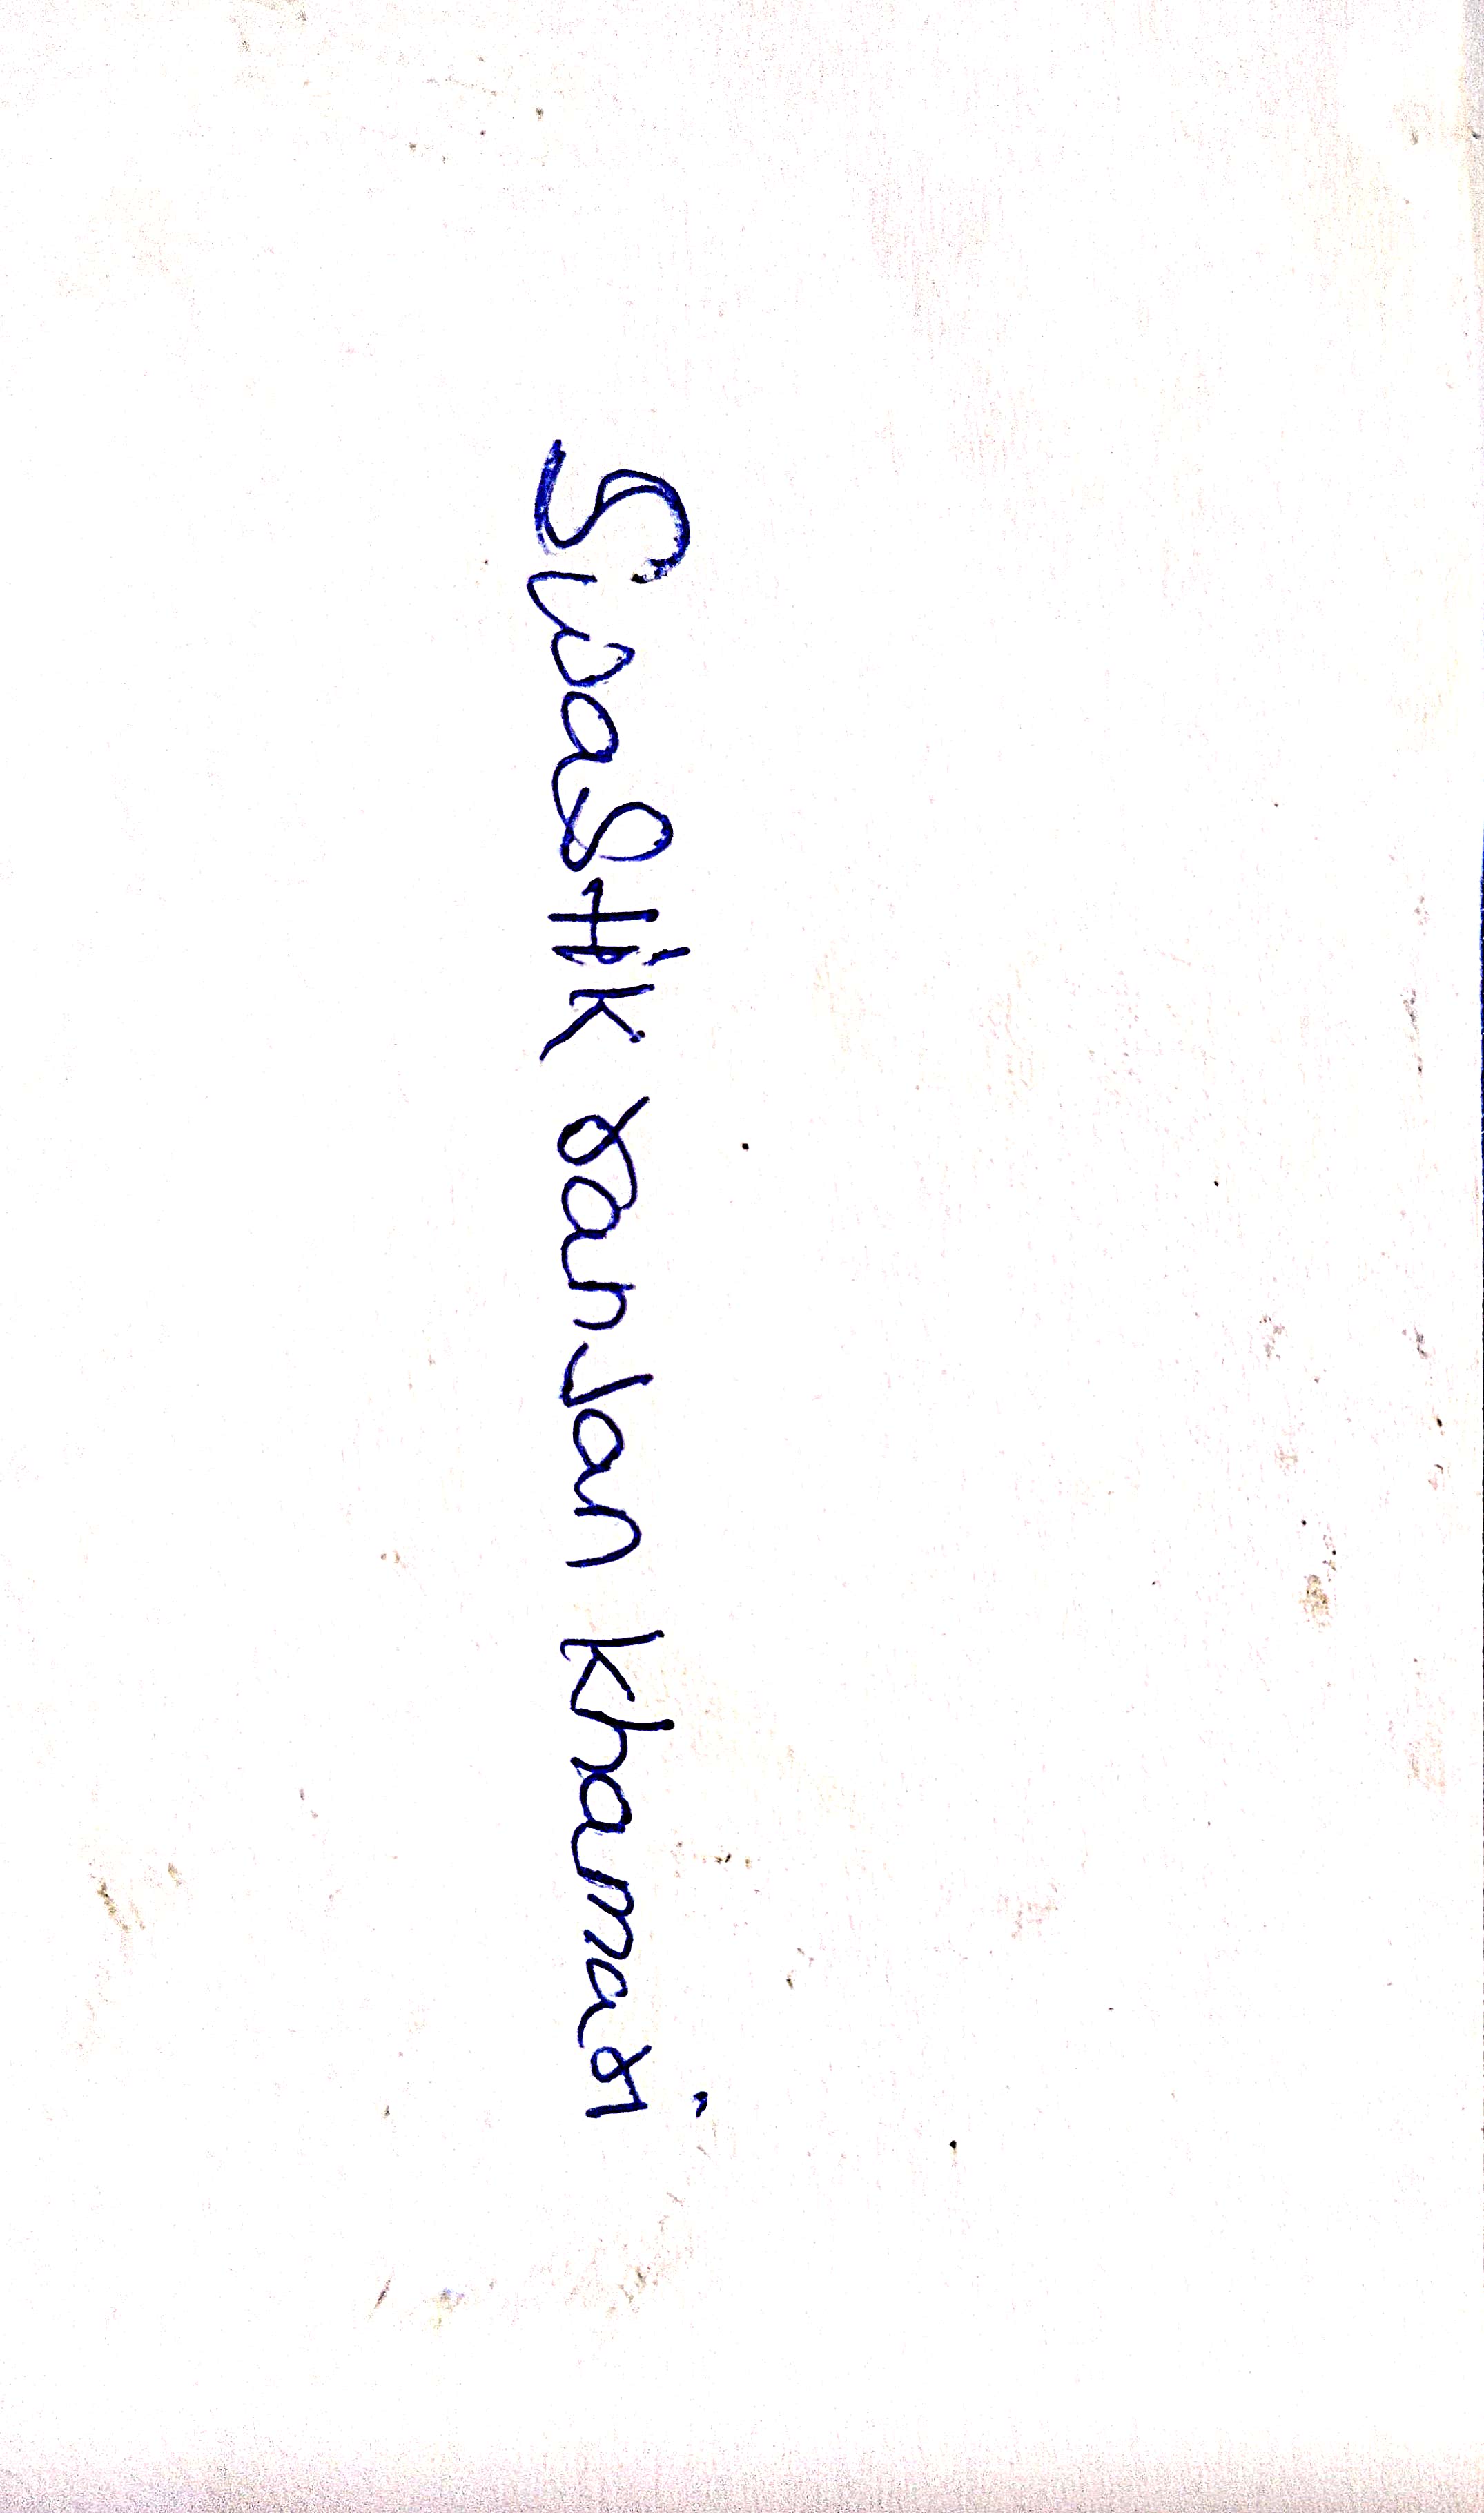 Swastik ranjan khamari